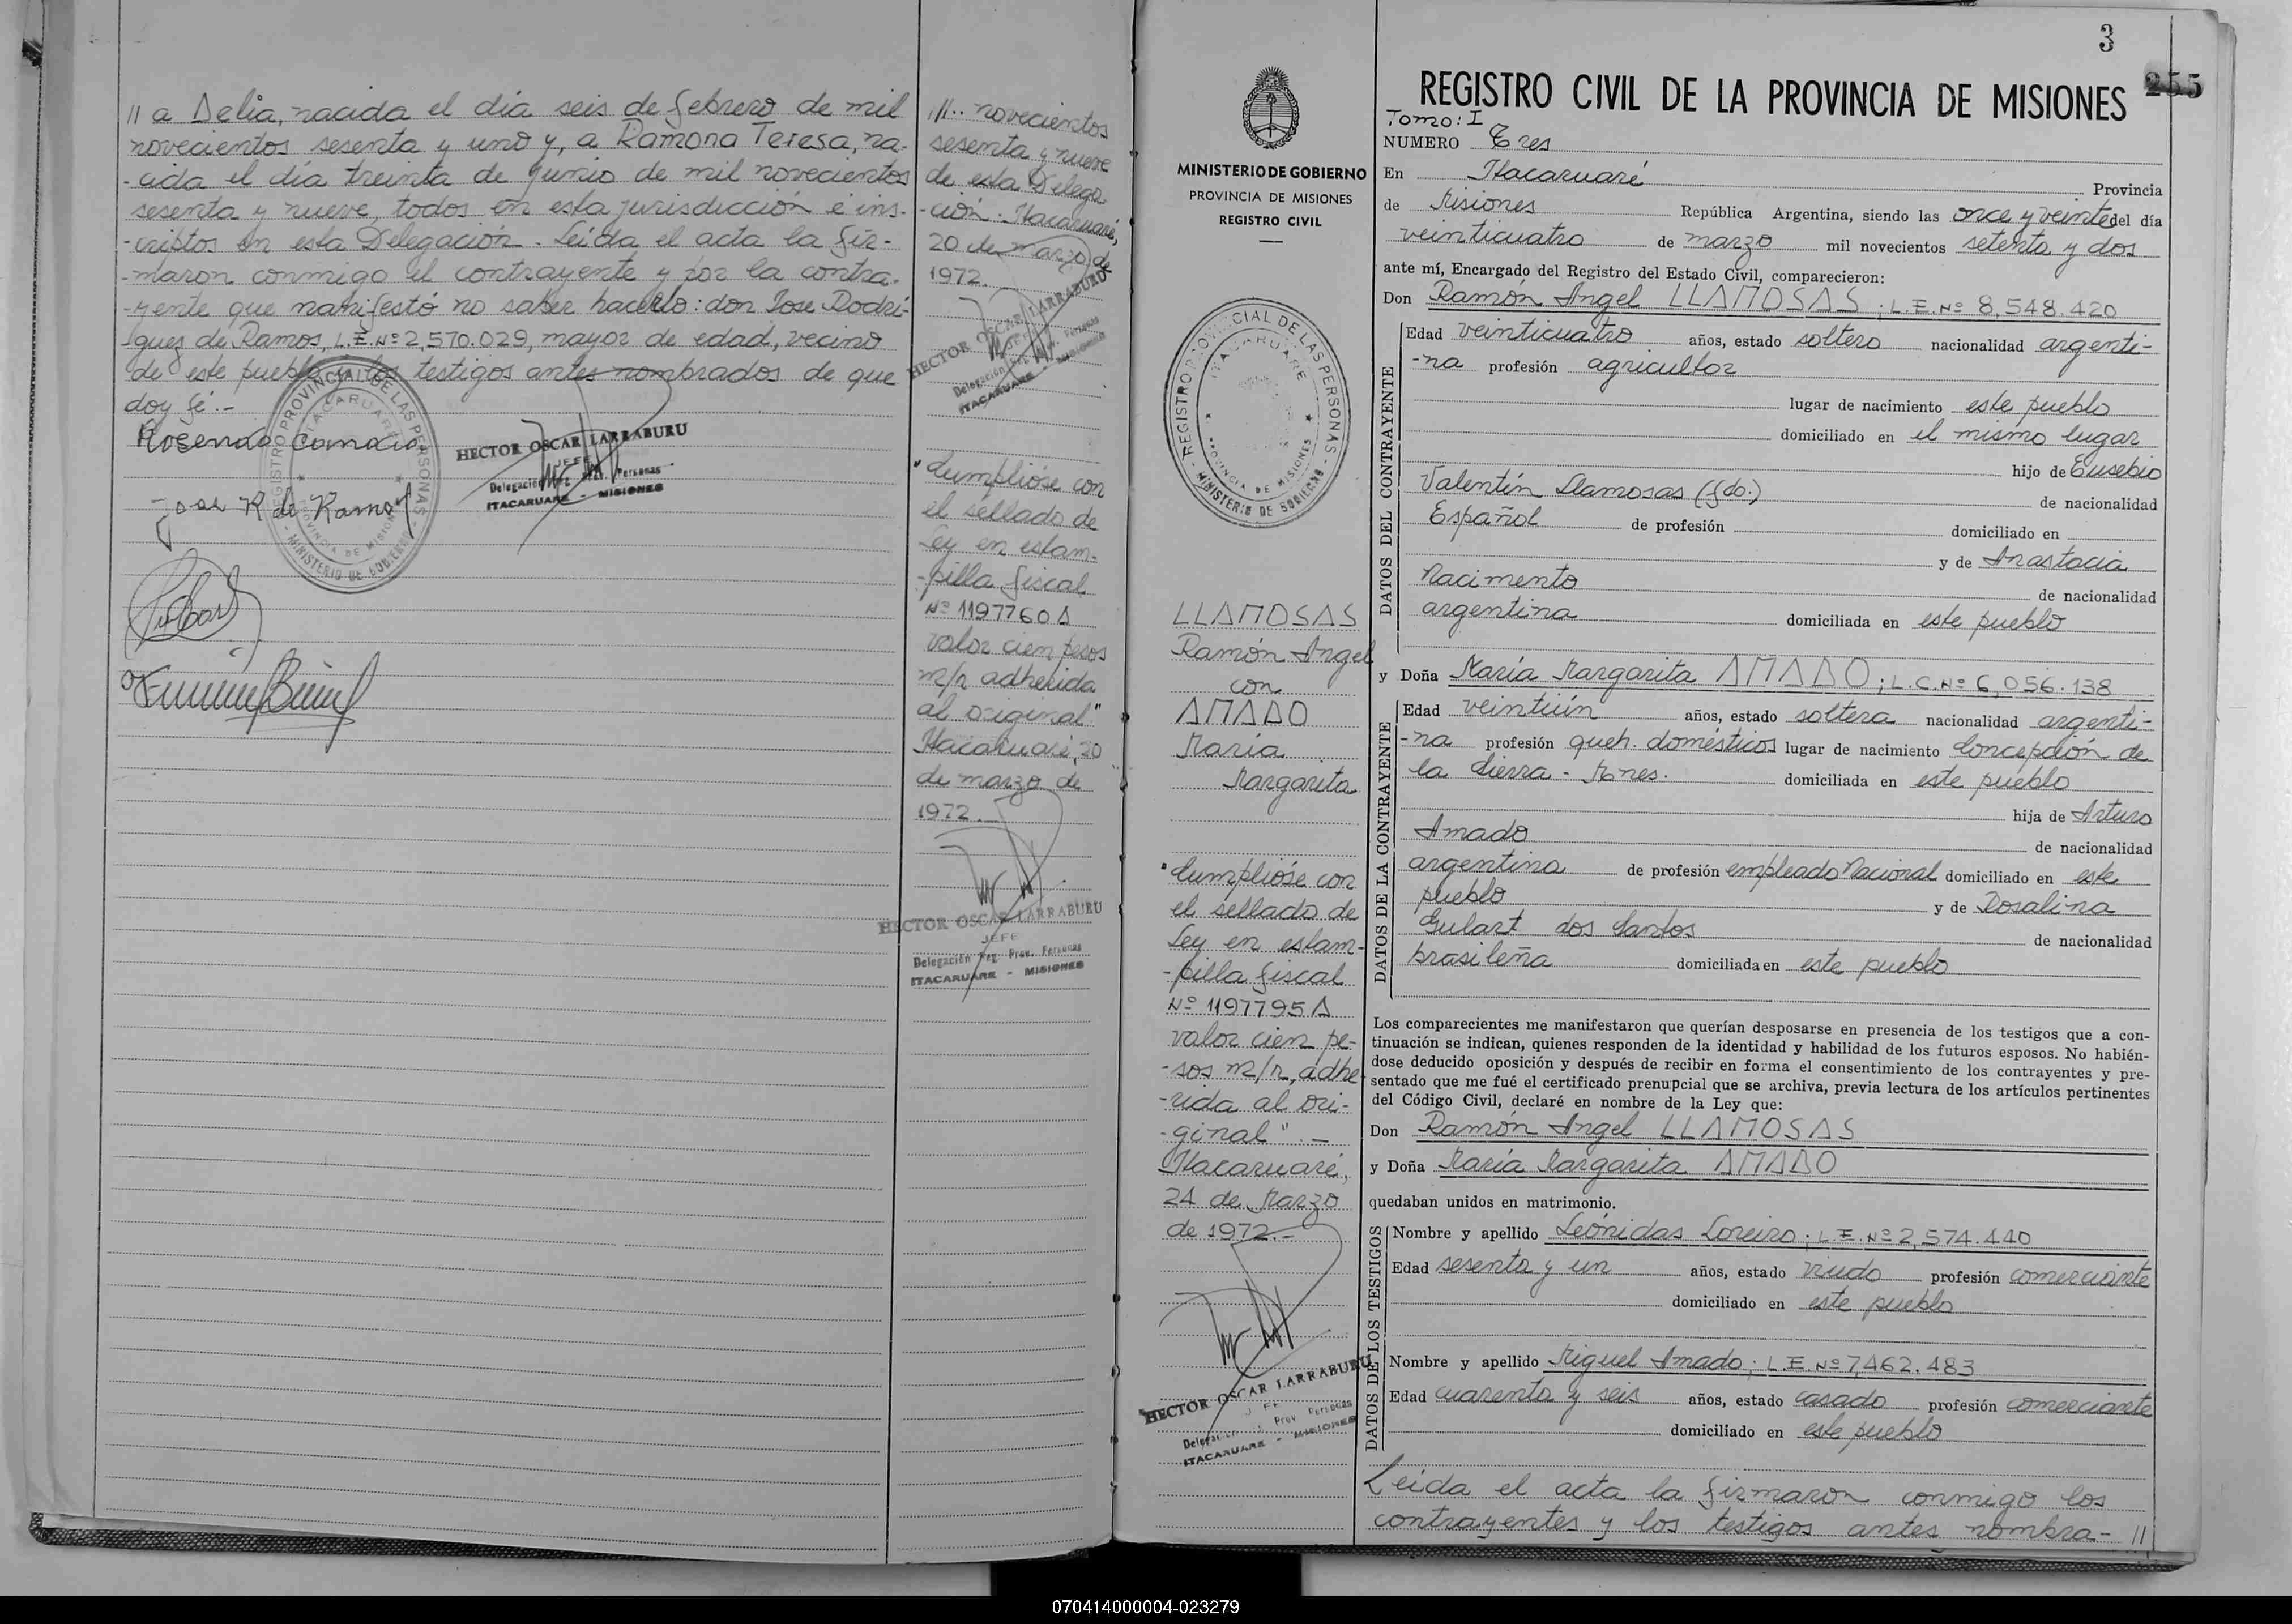 // a Delia, nacida el día seis de febrero de mil
novecientos sesenta y uno y, a Ramona Teresa, na-
-cida el día treinta de junio de mil novecientos
sesenta y nueve, todos en esta jurisdicción e ins-
-criptos en esta Delegación. Leída el acta la fir-
-maron conmigo el contrayente y por la contra-
-yente que manifestó no saber hacerlo: don Jose Rodri-
guez de Ramos, L.E. Nº 2,570.029, mayor de edad, vecino
de este pueblo y los testigos antes nombrados de que
doy fé.-
Rosendo
Jose R de Ramos
REGISTRO PROVINCIAL DE LAS PERSONAS
ITACARUARE
PROVINCIA DE MISIONES
MINISTERIO DE GOBIERNO
HECTOR OSCAR LARRABURU
JEFE
Delegación Reg. Prov. Personas
ITACARUARE - MISIONES
///.. novecientos
sesenta y nueve
de esta Delega
-ción. Itacaruaré,
20 de marzo de
1972.
HECTOR OSCAR LARRABURU
Delegación Personas
ITACARUARE - MISIONES
"Cumplióse con
el sellado de
Ley en estam-
-pilla fiscal
Nº 1197760 A
valor cien pesos
m/n adherida
al original"
Itacaruaré, 20
de marzo de
1972.
HECTOR OSCAR LARRABURU
JEFE
Delegación Reg. Prov. Personas
ITACARUARE - MISIONES
MINISTERIO DE GOBIERNO
PROVINCIA DE MISIONES
REGISTRO CIVIL
REGISTRO PROVINCIAL DE LAS PERSONAS
ITACARUARE
PROVINCIA DE MISIONES
MINISTERIO DE GOBIERNO
LLAMOSAS
Ramón Angel
con
AMADO
María
Margarita
"Cumplióse con
el sellado de
Ley en estam-
-pilla fiscal
Nº 1197795 A
valor cien pe-
-sos m/n, adhe-
-rida al ori-
-ginal".-
Itacaruaré,
24 de Marzo
de 1972.-
HECTOR OSCAR LARRABURU
JEFE
Delegación Prov. Personas
ITACARUARE - MISIONES
3
255
REGISTRO CIVIL DE LA PROVINCIA DE MISIONES
Tomo: I
NUMERO Tres
En Itacaruaré Provincia
de Misiones República Argentina, siendo las once y veinte del día
veinticuatro de marzo mil novecientos setenta y dos
ante mí, Encargado del Registro del Estado Civil, comparecieron:
Don Ramón Angel LLAMOSAS; L.E. Nº 8,548.420
DATOS DEL CONTRAYENTE
Edad veinticuatro años, estado soltero nacionalidad argenti-
-na profesión agricultor
lugar de nacimiento este pueblo
domiciliado en el mismo lugar
hijo de Eusebio
Valentín Llamosas (fdo.) de nacionalidad
Español de profesión domiciliado en
y de Anastacia
Nacimento de nacionalidad
argentina domiciliada en este pueblo
y Doña María Margarita AMADO; L.C. Nº 6,056.138
DATOS DE LA CONTRAYENTE
Edad veintiún años, estado soltera nacionalidad argenti-
-na profesión queh. domésticos lugar de nacimiento Concepción de
la Sierra - Mnes. domiciliada en este pueblo
hija de Arturo
Amado de nacionalidad
argentina de profesión empleado Nacional domiciliado en este
pueblo y de Rosalina
Gulart dos Santos de nacionalidad
brasileña domiciliada en este pueblo
Los comparecientes me manifestaron que querían desposarse en presencia de los testigos que a con-
tinuación se indican, quienes responden de la identidad y habilidad de los futuros esposos. No habién-
dose deducido oposición y después de recibir en forma el consentimiento de los contrayentes y pre-
sentado que me fué el certificado prenupcial que se archiva, previa lectura de los artículos pertinentes
del Código Civil, declaré en nombre de la Ley que:
Don Ramón Angel LLAMOSAS
y Doña María Margarita AMADO
quedaban unidos en matrimonio.
DATOS DE LOS TESTIGOS
Nombre y apellido Leónidas Loreiro; L.E. Nº 2,574.440
Edad sesenta y un años, estado viudo profesión comerciante
domiciliado en este pueblo
Nombre y apellido Miguel Amado; L.E. Nº 7,462.483
Edad cuarenta y seis años, estado casado profesión comerciante
domiciliado en este pueblo
Leida el acta la firmaron conmigo los
contrayentes y los testigos antes nombra- //
070414000004-023279